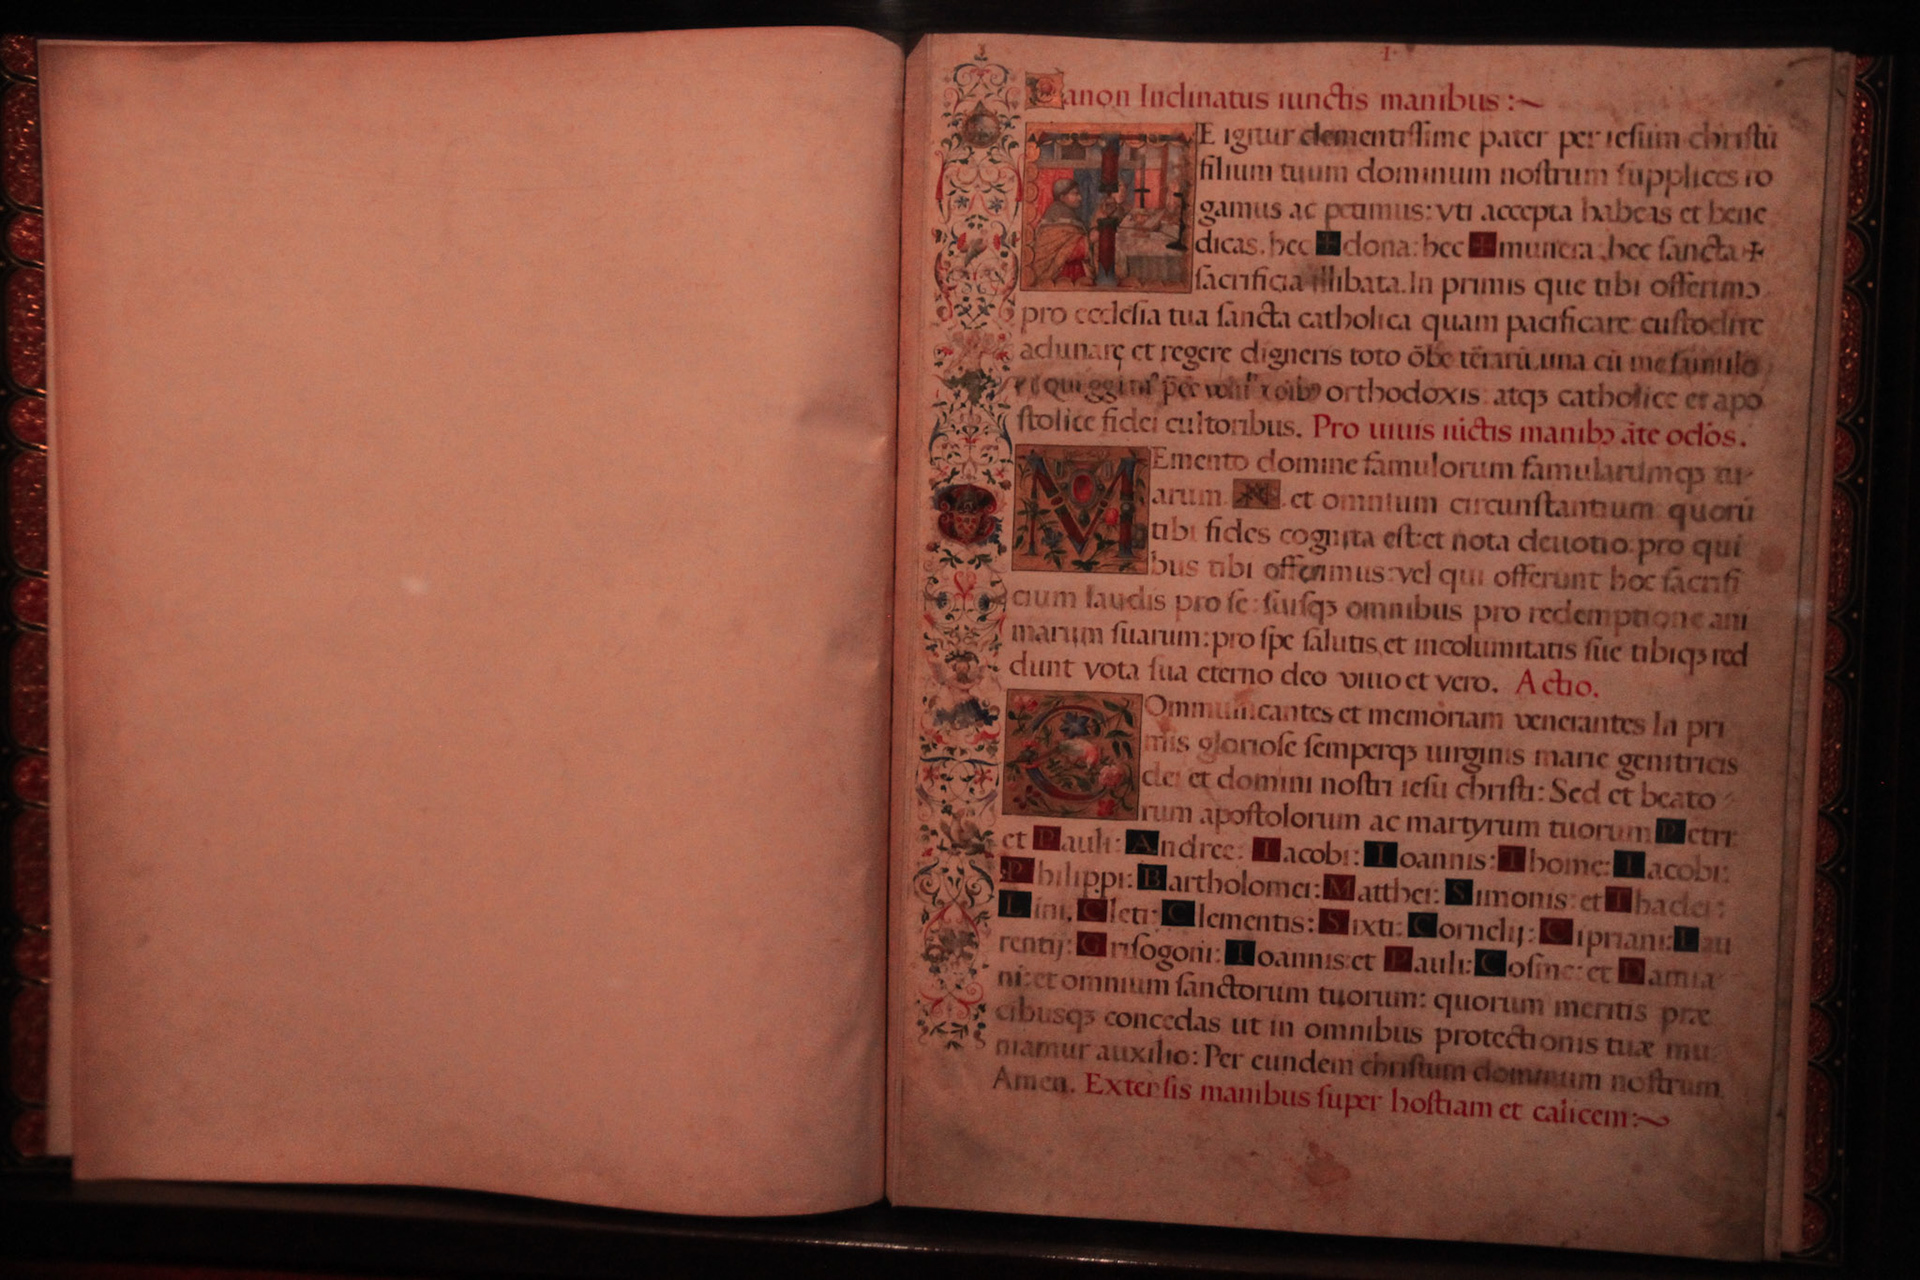 ·I·
Canon Inclinatus iunctis manibus :~
TE igitur clementissime pater per iesum christū
filium tuum dominum nostrum supplices ro
gamus ac petimus: vti accepta habeas et bene
dicas. hec ✠ dona: hec ✠ munera. hec sancta ✠
sacrificia illibata. In primis que tibi offerimꝰ
pro ecclesia tua sancta catholica quam pacificare: custodire
adunare et regere digneris toto ōbe tērarū. una cū me famulo
orthodoxis: atqꝫ catholice et apo
stolice fidei cultoribus. Pro uiuis iūctis manibꝰ āte oclos.
MEmento domine famulorum famularumqꝫ tu-
arum. N. et omnium circunstantium: quorū
tibi fides cognita est: et nota deuotio: pro qui
bus tibi offerimus: vel qui offerunt hoc sacrifi
cium laudis pro se: suisqꝫ omnibus pro redemptione ani
marum suarum: pro spe salutis et incolumitatis sue tibiqꝫ red
dunt vota sua eterno deo viuo et vero. Actio.
COmmunicantes et memoriam venerantes In pri
mis gloriose semperqꝫ uirginis marie genitricis
dei et domini nostri iesu christi: Sed et beato
rum apostolorum ac martyrum tuorum Petri:
et Pauli: Andree: Iacobi: Ioannis: Thome: Iacobi:
Philippi: Bartholomei: Matthei: Simonis: et Thadei:
Lini, Cleti: Clementis: Sixti: Cornelij: Cipriani: Lau
rentij: Grisogoni: Ioannis: et Pauli: Cosme: et Damia
ni: et omnium sanctorum tuorum: quorum meritis præ
cibusqꝫ concedas ut in omnibus protectionis tuæ mu
niamur auxilio: Per eundem christum dominum nostrum
Amen. Extersis manibus super hostiam et calicem:~